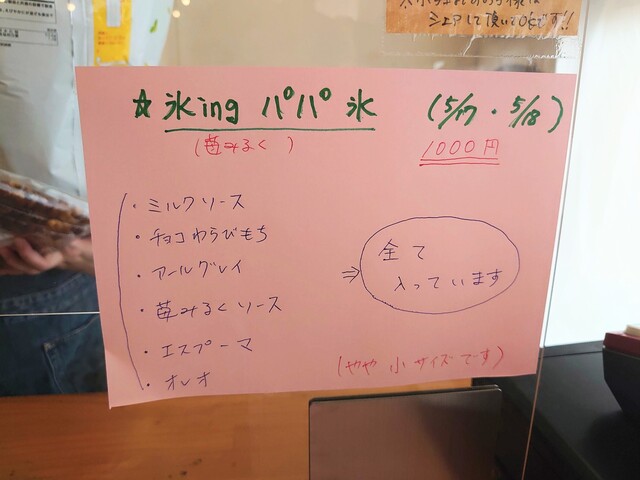 シェアして頂いてOKです!!
☆ 氷ing パパ 氷 (5/17・5/18)
(苺みるく)
1000円
・ミルクソース
・チョコわらびもち
・アールグレイ
・苺みるくソース
・エスプーマ
・オレオ
⇒ 全て
入っています
(やや小サイズです)